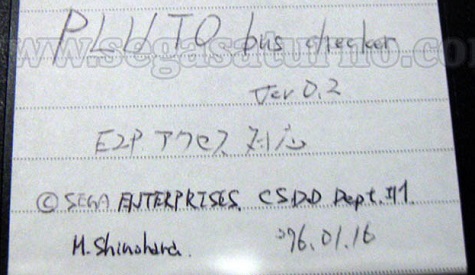 PLUTO bus checker
www.segasaturno.com
Ver 0.2
E2P アクセス 対応
© SEGA ENTERPRISES. CSDD Dept. #1
M. Shinohara. '96.01.16